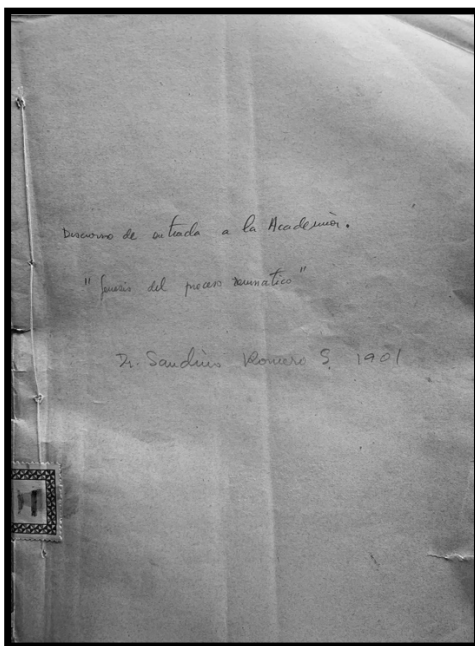 Discurso de entrada a la Academia.
"Genesis del proceso reumatico"
Dr. Sandino Romero S. 1901